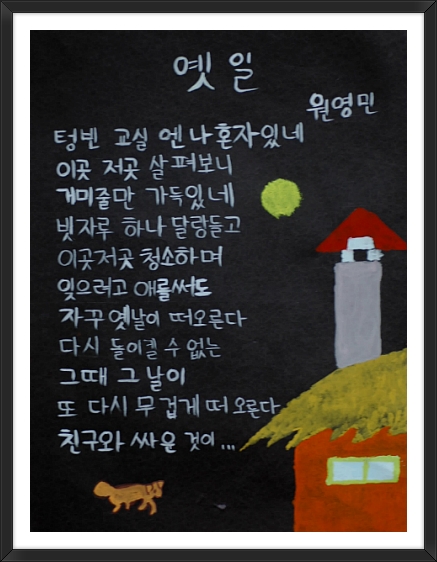 옛 일
원영민
텅빈 교실엔 나 혼자 있네
이곳 저곳 살펴보니
거미줄만 가득있네
빗자루 하나 달랑들고
이곳저곳 청소하며
잊으려고 애를써도
자꾸 옛날이 떠오른다
다시 돌이킬 수 없는
그때 그 날이
또 다시 무겁게 떠오른다
친구와 싸운 것이...